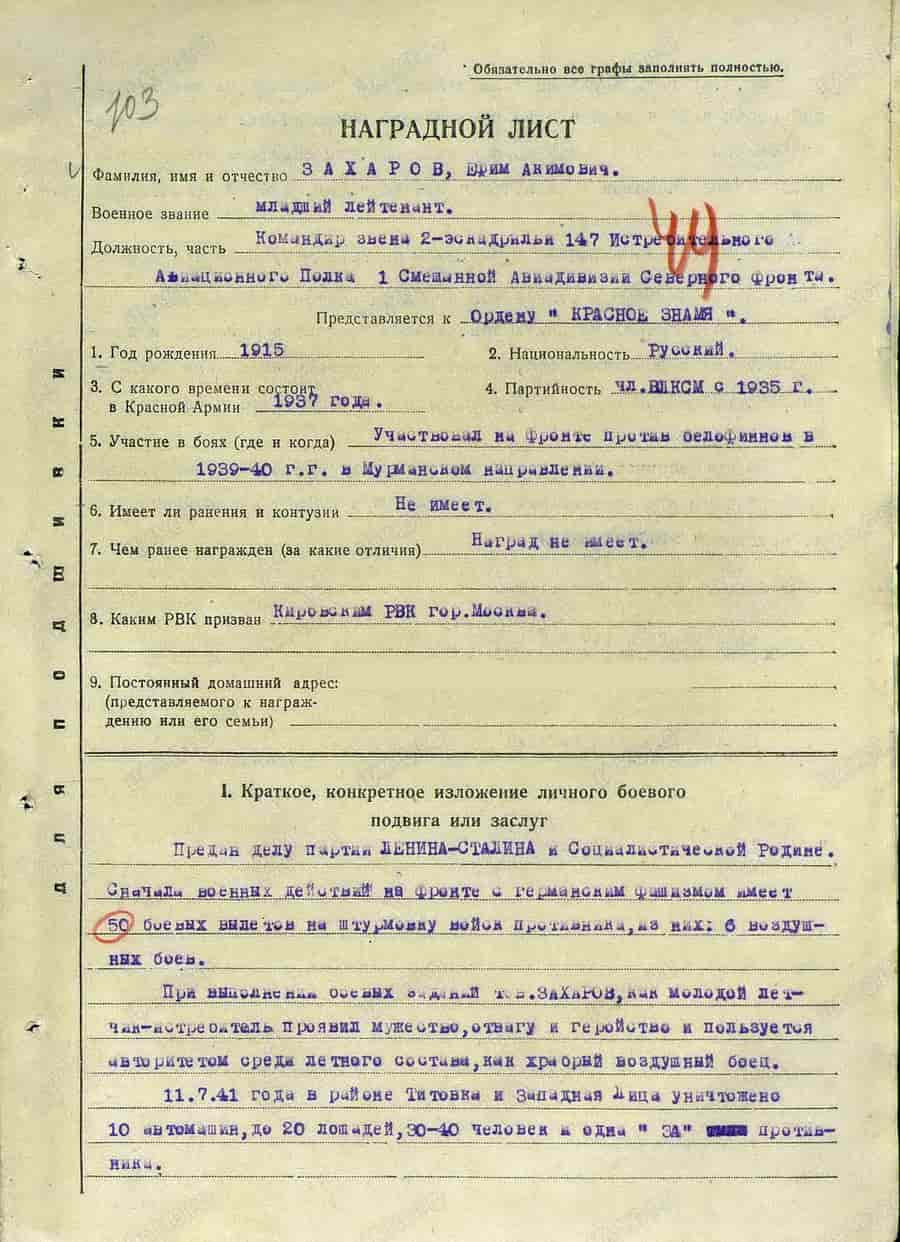 Обязательно все графы заполнять полностью.
103
НАГРАДНОЙ ЛИСТ
Фамилия, имя и отчество ЗАХАРОВ, Ефим Акимович.
Военное звание младший лейтенант.
44
Должность, часть Командир звена 2-эскадрильи 147 Истребительного
Авиационного Полка 1 Смешанной Авиадивизии Северного фронта.
Представляется к Ордену " КРАСНОЕ ЗНАМЯ ".
1. Год рождения 1915 2. Национальность Русский.
3. С какого времени состоит 4. Партийность чл.ВЛКСМ с 1935 г.
в Красной Армии 1937 года.
5. Участие в боях (где и когда) Участвовал на фронте против белофиннов в
1939-40 г.г. в Мурманском направлении.
6. Имеет ли ранения и контузии Не имеет.
7. Чем ранее награжден (за какие отличия) Наград не имеет.
8. Каким РВК призван Кировским РВК гор.Москва.
9. Постоянный домашний адрес:
(представляемого к награж-
дению или его семьи)
Для подшивки
1. Краткое, конкретное изложение личного боевого
подвига или заслуг
Предан делу партии ЛЕНИНА-СТАЛИНА и Социалистической Родине.
Сначала военных действий на фронте с германским фашизмом имеет
50 боевых вылетов на штурмовку войск противника,из них: 6 воздуш-
ных боев.
При выполнении боевых заданий тов.ЗАХАРОВ,как молодой лет-
чик-истребитель проявил мужество,отвагу и геройство и пользуется
авторитетом среди летного состава,как храбрый воздушный боец.
11.7.41 года в районе Титовка и Западная Лица уничтожено
10 автомашин,до 20 лошадей,30-40 человек и одна " ЗА" против-
ника.